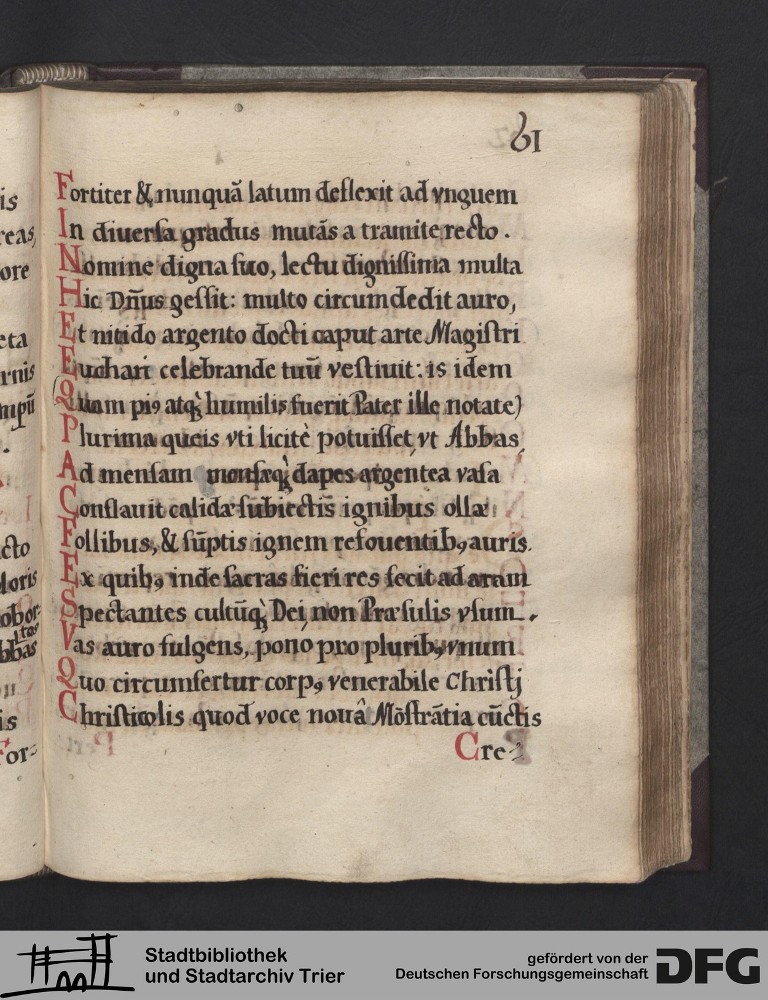 61
Fortiter & nunquā latum deflexit ad vnguem
In diuersa gradus mutās a tramite recto.
Nomine digna suo, lectu dignissima multa
Hic Dn̄us gessit: multo circumdedit auro,
Et nitido argento docti caput arte Magistri
Euchari celebrande tuū vestiuit: is idem
(Quam pi9 atq; humilis fuerit Pater ille notate)
Plurima queis vti licitè potuisset, vt Abbas,
Ad mensam mensæq; dapes argentea vasa
Conflauit calidæ subiectis ignibus ollæ
Follibus, & sūptis ignem refouentib9 auris.
Ex quib9 inde sacras fieri res fecit ad aram
Spectantes cultūq; Dei, non Præsulis vsum.
Vas auro fulgens, pono pro plurib9 vnum
Quo circumfertur corp9 venerabile Christj
Christicolis quod voce nouâ Mōstrātia cūctis
Cre-
is
reas,
ore
eta
rnis
mpū
.
cto
loris
obor-
tas
bbas
is
For-
Stadtbibliothek
und Stadtarchiv Trier
gefördert von der
Deutschen Forschungsgemeinschaft
DFG